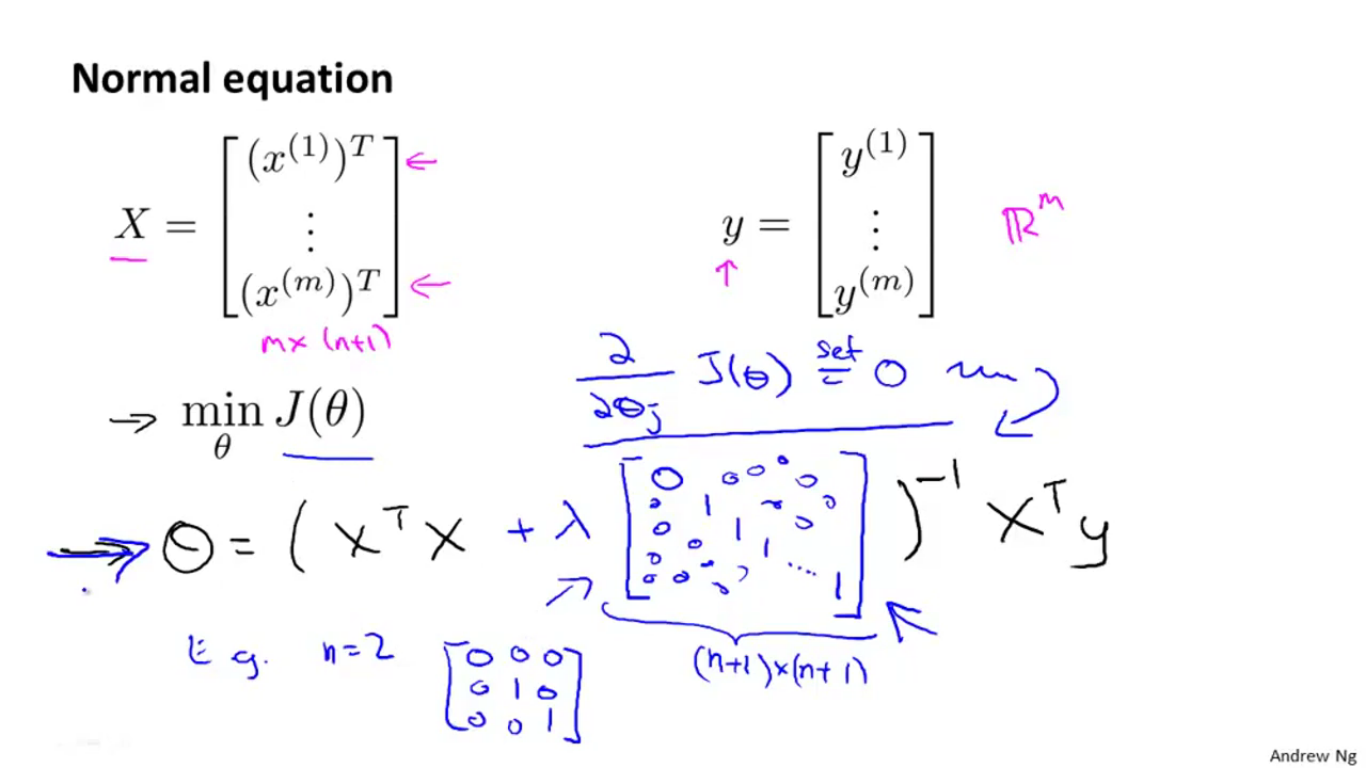 Normal equation
X = [ (x^(1))^T ⋮ (x^(m))^T ] y = [ y^(1) ⋮ y^(m) ] ℝ^m
m×(n+1)
∂/∂θ_j J(θ) set = 0
→ min_θ J(θ)
θ = ( X^T X + λ [ 0 0 0 0 0 1 0 0 1 0 0 1 0 0 0 ⋱ 1 ] )^-1 X^T y
(n+1)×(n+1)
E.g. n=2 [ 0 0 0
0 1 0
0 0 1 ]
Andrew Ng